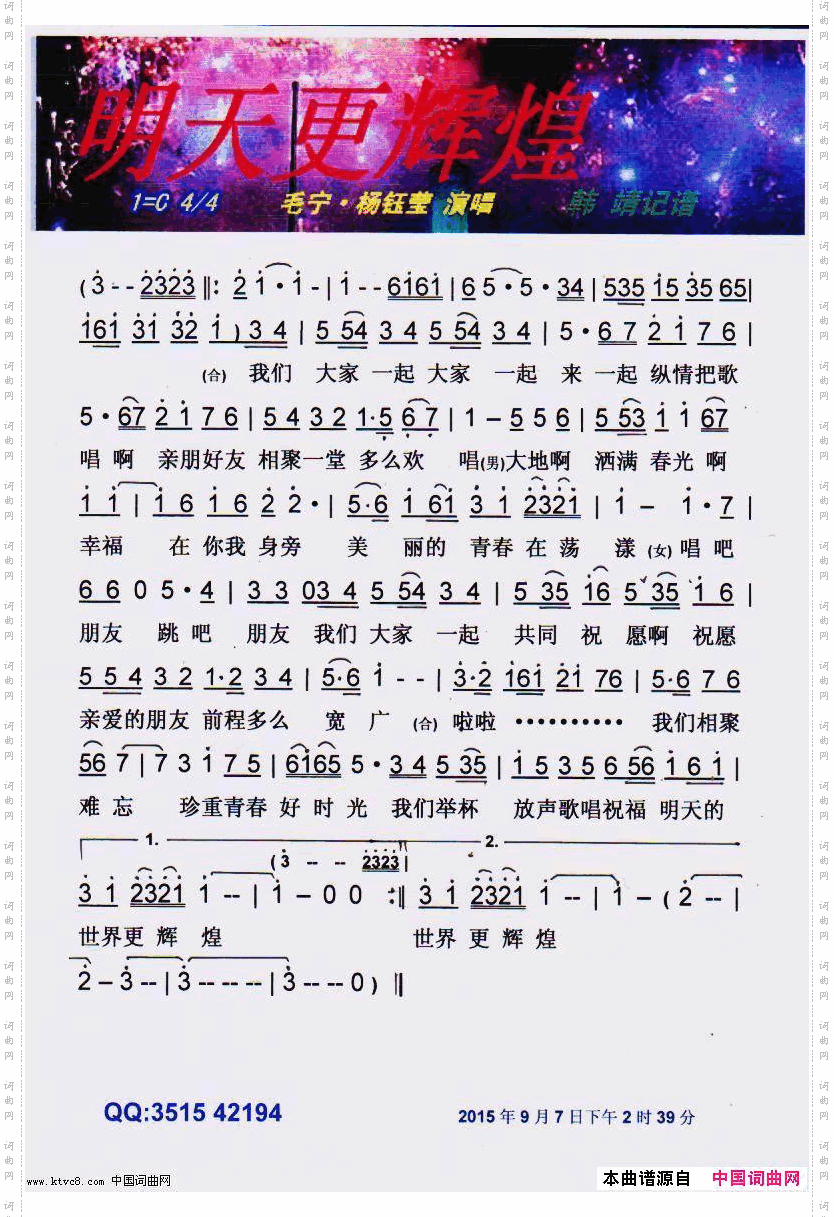 明天更辉煌
1=C 4/4 毛宁·杨钰莹 演唱 韩 靖记谱
(3 - - 2323 ‖: 2 1 · 1 - | 1 - - 6161 | 6 5 · 5 · 34 | 535 15 35 65 |
161 31 32 1 ) 3 4 | 5 54 3 4 5 54 3 4 | 5 · 6 7 2 1 7 6 |
(合) 我们 大家 一起 大家 一起 来 一起 纵情把歌
5 · 67 2 1 7 6 | 5 4 3 2 1·5 6 7 | 1 – 5 5 6 | 5 53 1 1 67
唱 啊 亲朋好友 相聚一堂 多么欢 唱(男)大地啊 洒满 春光 啊
1 1 | 1 6 1 6 2 2 · | 5·6 1 61 3 1 2321 | 1 – 1 · 7 |
幸福 在 你我 身旁 美 丽的 青春 在 荡 漾 (女) 唱 吧
6 6 0 5 · 4 | 3 3 03 4 5 54 3 4 | 5 35 16 5 35 1 6 |
朋友 跳 吧 朋友 我们 大家 一起 共同 祝 愿啊 祝愿
5 5 4 3 2 1·2 3 4 | 5·6 1 - - | 3·2 161 21 76 | 5·6 7 6
亲爱的朋友 前程多么 宽 广 (合) 啦啦 ·········· 我们相聚
56 7 | 7 3 1 7 5 | 6165 5 · 3 4 5 35 | 1 5 3 5 6 56 1 6 1 |
难 忘 珍重青春 好 时 光 我们举杯 放声歌唱祝福 明天的
1. 2.
(3 -- -- 2323 |
3 1 2321 1 -- | 1 – 0 0 :‖ 3 1 2321 1 -- | 1 – ( 2 -- |
世界更 辉 煌 世界 更 辉 煌
2 – 3 -- | 3 -- -- | 3 -- -- 0 ) ‖
QQ:3515 42194
2015 年 9 月 7 日下午 2 时 39 分
www.ktvc8.com 中国词曲网
本曲谱源自 中国词曲网